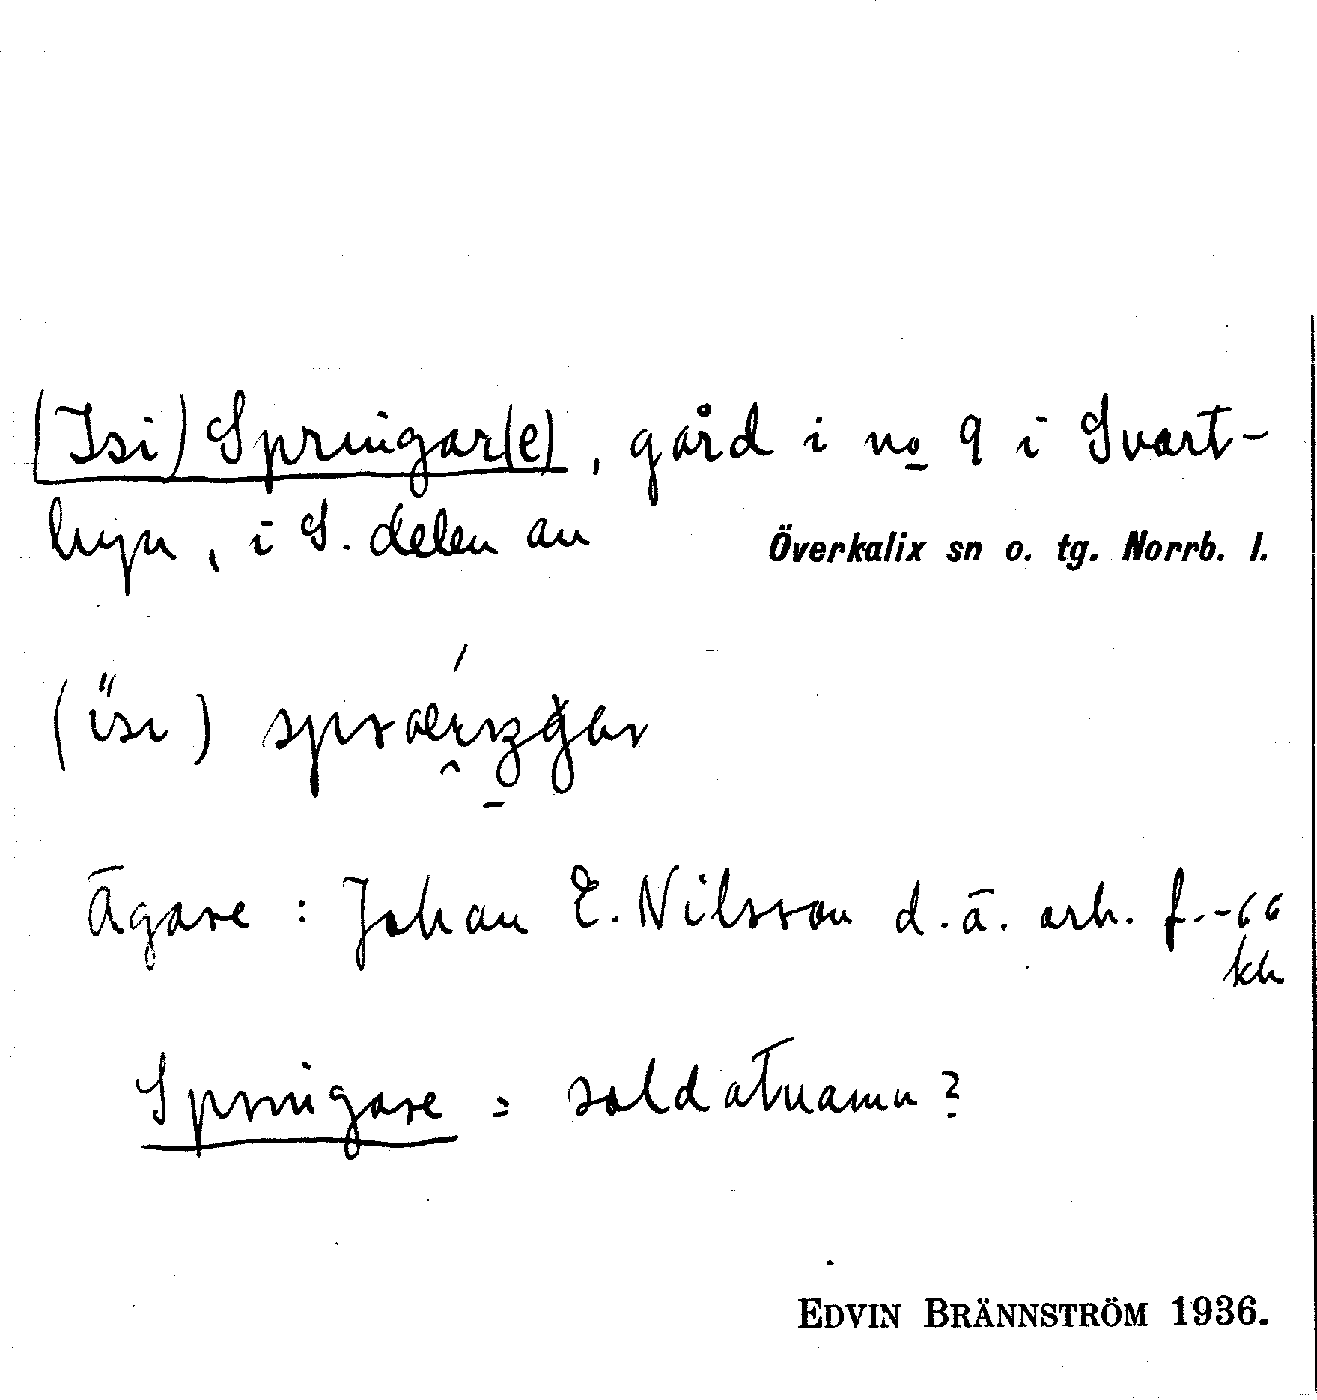 (Isi) Springar(e), gård i no 9 i Svart-
byn, i S. delen av Överkalix sn o. tg. Norrb. l.
Ägare : Johan E. Nilsson d.ä. arb. f. -66
kh
Springare = soldatnamn?
EDVIN BRÄNNSTRÖM 1936.